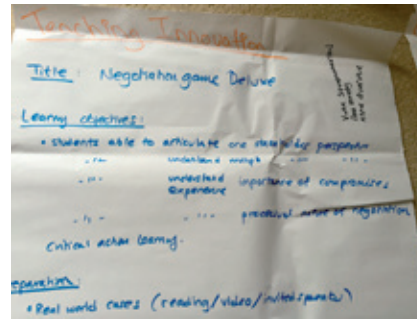 Teaching Innovation
Title: Negotiation game Deluxe
Learning objectives:
• students able to articulate one stakeholder perspective
-"- understand multiple -"- -"-
-"- understand importance of compromises
experience
-"- -"- procedural nature of negotiation
Critical action learning.
eparation:
• Real world cases (reading/video/invited